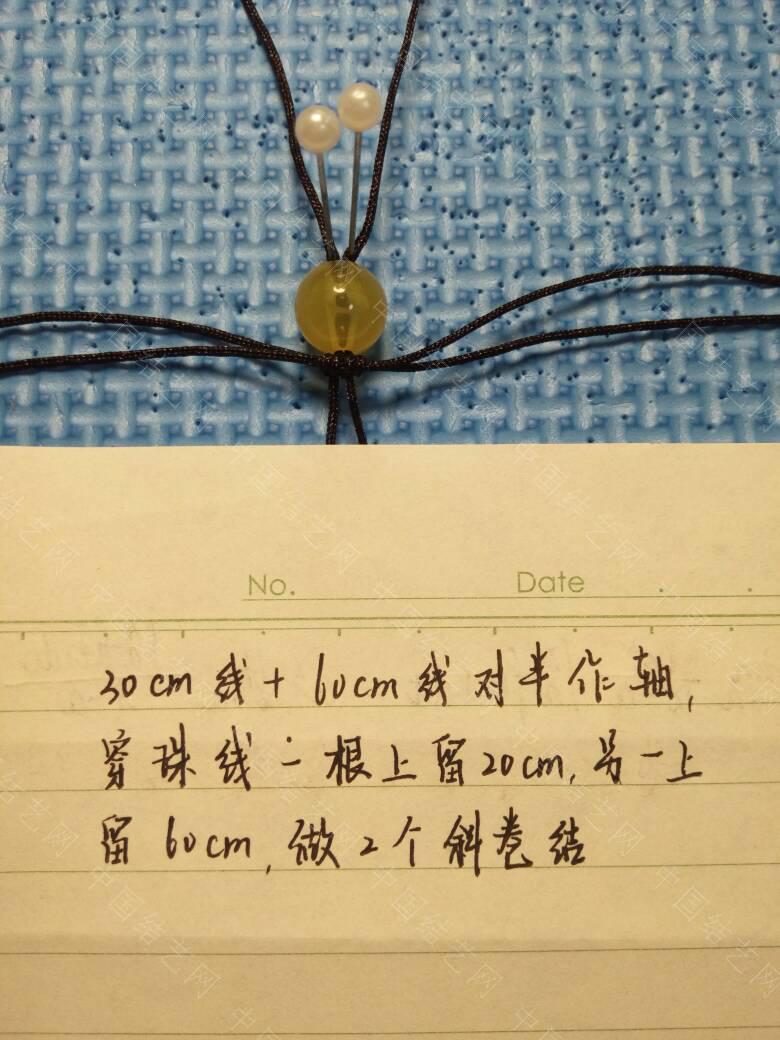 No.
Date
30cm线+60cm线对半作轴,
穿珠线一根上留20cm,另一上
留60cm,做2个斜卷结
中国结艺网